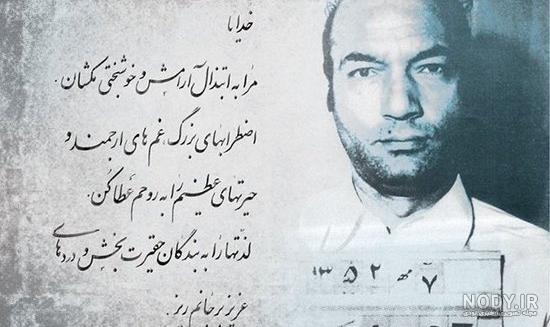 خدایا
مرا به ابتذال آرامش و خوشبختی مکشان .
اضطرابهای بزرگ، غم های ارجمند و
حیرتهای عظیم را به روحم عطا کن .
لذتها را به بندگان حقیرت بخش و دردهای
عزیز بر جانم ریز .
۷ مهر ۱۳۵۲
NODY.IR